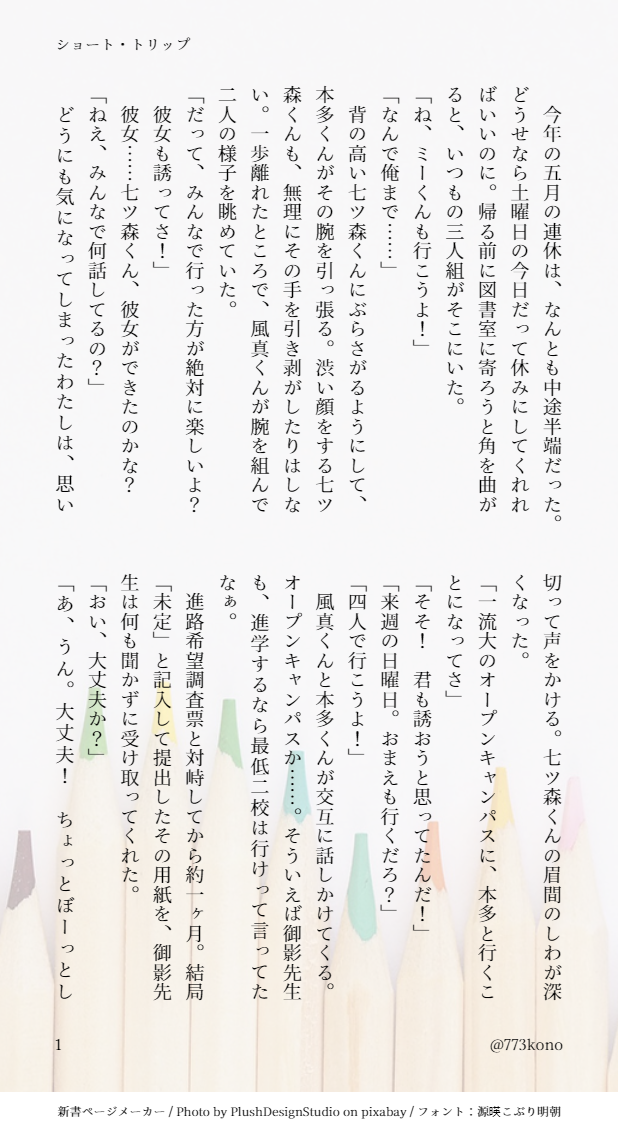 ショート・トリップ
　今年の五月の連休は、なんとも中途半端だった。
どうせなら土曜日の今日だって休みにしてくれれ
ばいいのに。帰る前に図書室に寄ろうと角を曲が
ると、いつもの三人組がそこにいた。
「ね、ミーくんも行こうよ！」
「なんで俺まで……」
　背の高い七ツ森くんにぶらさがるようにして、
本多くんがその腕を引っ張る。渋い顔をする七ツ
森くんも、無理にその手を引き剥がしたりはしな
い。一歩離れたところで、風真くんが腕を組んで
二人の様子を眺めていた。
「だって、みんなで行った方が絶対に楽しいよ？
　彼女も誘ってさ！」
　彼女……七ツ森くん、彼女ができたのかな？
「ねえ、みんなで何話してるの？」
　どうにも気になってしまったわたしは、思い
切って声をかける。七ツ森くんの眉間のしわが深
くなった。
「一流大のオープンキャンパスに、本多と行くこ
とになってさ」
「そそ！　君も誘おうと思ってたんだ！」
「来週の日曜日。おまえも行くだろ？」
「四人で行こうよ！」
　風真くんと本多くんが交互に話しかけてくる。
オープンキャンパスか……。そういえば御影先生
も、進学するなら最低二校は行けって言ってた
なぁ。
　進路希望調査票と対峙してから約一ヶ月。結局
「未定」と記入して提出したその用紙を、御影先
生は何も聞かずに受け取ってくれた。
「おい、大丈夫か？」
「あ、うん。大丈夫！　ちょっとぼーっとし
1
@773kono
新書ページメーカー / Photo by PlushDesignStudio on pixabay / フォント：源暎こぶり明朝